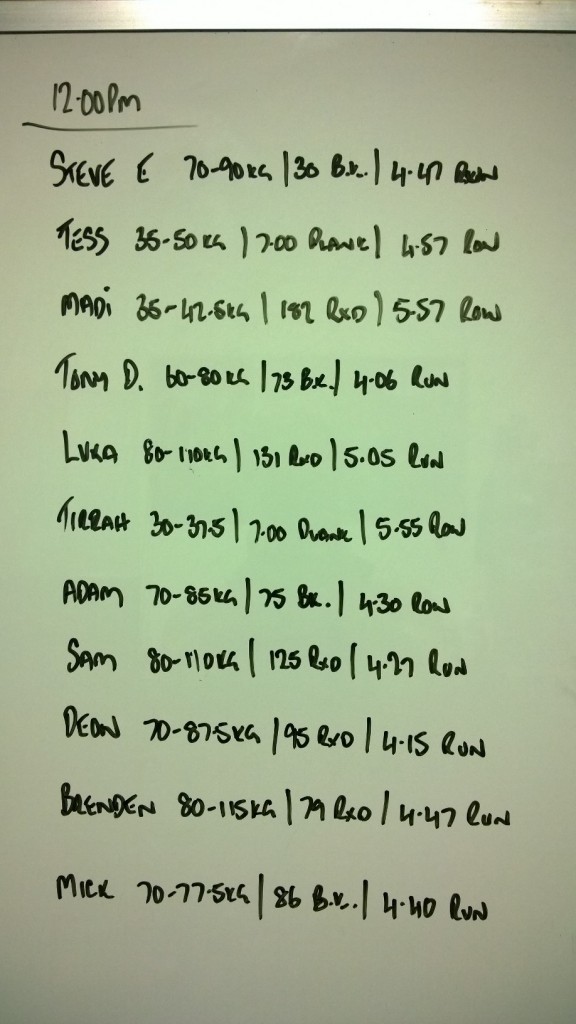 12.00pm
STEVE E 70-90kg | 30 B.K. | 4.47 Run
TESS 35-50kg | 7.00 PLANK | 4.57 Row
MADI 35-42.5kg | 182 RXD | 5.57 Row
TONY D. 60-80kg | 73 B.K. | 4.06 Run
LUKA 80-110kg | 131 RXD | 5.05 Run
TIRRAH 30-37.5 | 7.00 PLANK | 5.55 Row
ADAM 70-85kg | 75 BK. | 4.30 Row
SAM 80-110kg | 125 RXD | 4.27 Run
DEON 70-87.5kg | 95 RXD | 4.15 RUN
BRENDEN 80-115kg | 79 RXD | 4.47 RUN
MICK 70-77.5kg | 86 B.K. | 4.40 RUN